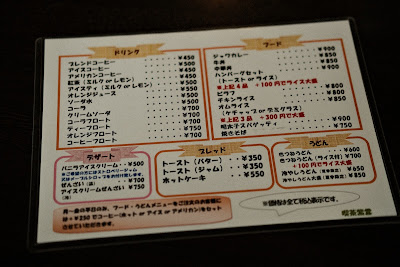 ドリンク
ブレンドコーヒー ・・・・・ ¥450
アイスコーヒー ・・・・・ ¥500
アメリカンコーヒー ・・・・・ ¥450
紅茶（ミルク or レモン） ・・・・・ ¥500
アイスティ（ミルク or レモン） ・・・・・ ¥550
オレンジジュース ・・・・・ ¥500
ソーダ水 ・・・・・ ¥500
コーラ ・・・・・ ¥500
クリームソーダ ・・・・・ ¥700
コーラフロート ・・・・・ ¥700
ティーフロート ・・・・・ ¥750
オレンジフロート ・・・・・ ¥700
コーヒーフロート ・・・・・ ¥700
フード
ジャワカレー ・・・・・ ¥900
牛丼 ・・・・・ ¥850
中華丼 ・・・・・ ¥900
ハンバーグセット ・・・・・ ¥900
（トースト or ライス）
※上記4品 +100円でライス大盛
ピラフ ・・・・・ ¥800
チキンライス ・・・・・ ¥800
オムライス ・・・・・ ¥850
（ケチャップ or デミグラス）
※上記3品 +300円で大盛
明太子スパゲッティ ・・・・・ ¥900
焼きそば ・・・・・ ¥750
デザート
バニラアイスクリーム ・・・・・ ¥500
※ご希望の方にはストロベリージャム
又はメープルトップをお付けします。
ぜんざい ・・・・・ ¥700
アイスクリームぜんざい ・・・・・ ¥750
ブレッド
トースト（バター） ・・・・・ ¥350
トースト（ジャム） ・・・・・ ¥350
ホットケーキ ・・・・・ ¥550
うどん
きつねうどん ・・・・・ ¥600
きつねうどん（ライス付） ・・・・・ ¥700
+100円でライス大盛
冷やしうどん ・・・・・ ¥650
冷やしうどん大盛 ・・・・・ ¥850
月～金の平日のみ、フード・うどんメニューをご注文のお客様に
は+¥250でコーヒー（ホット or アイス or アメリカン）をセット
させていただきます。
※価格は全て税込表示です。